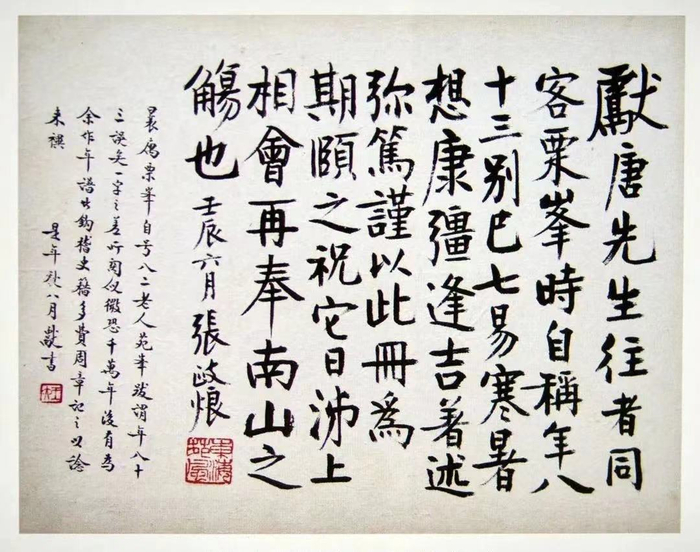 獻唐先生往者同
客栗峯時自稱年八
十三别已七易寒暑
想康彊逢吉著述
弥篤謹以此冊為
期頤之祝它日泲上
相會再奉南山之
觴也 壬辰六月張政烺
曩寓栗峯自号八二老人苑峯跋謂年八十
三誤矣一字之差所関仅微恐千萬年後有為
余作年譜者鈎稽史籍多費周章記之以諗
来禩 是年秋八月獻書